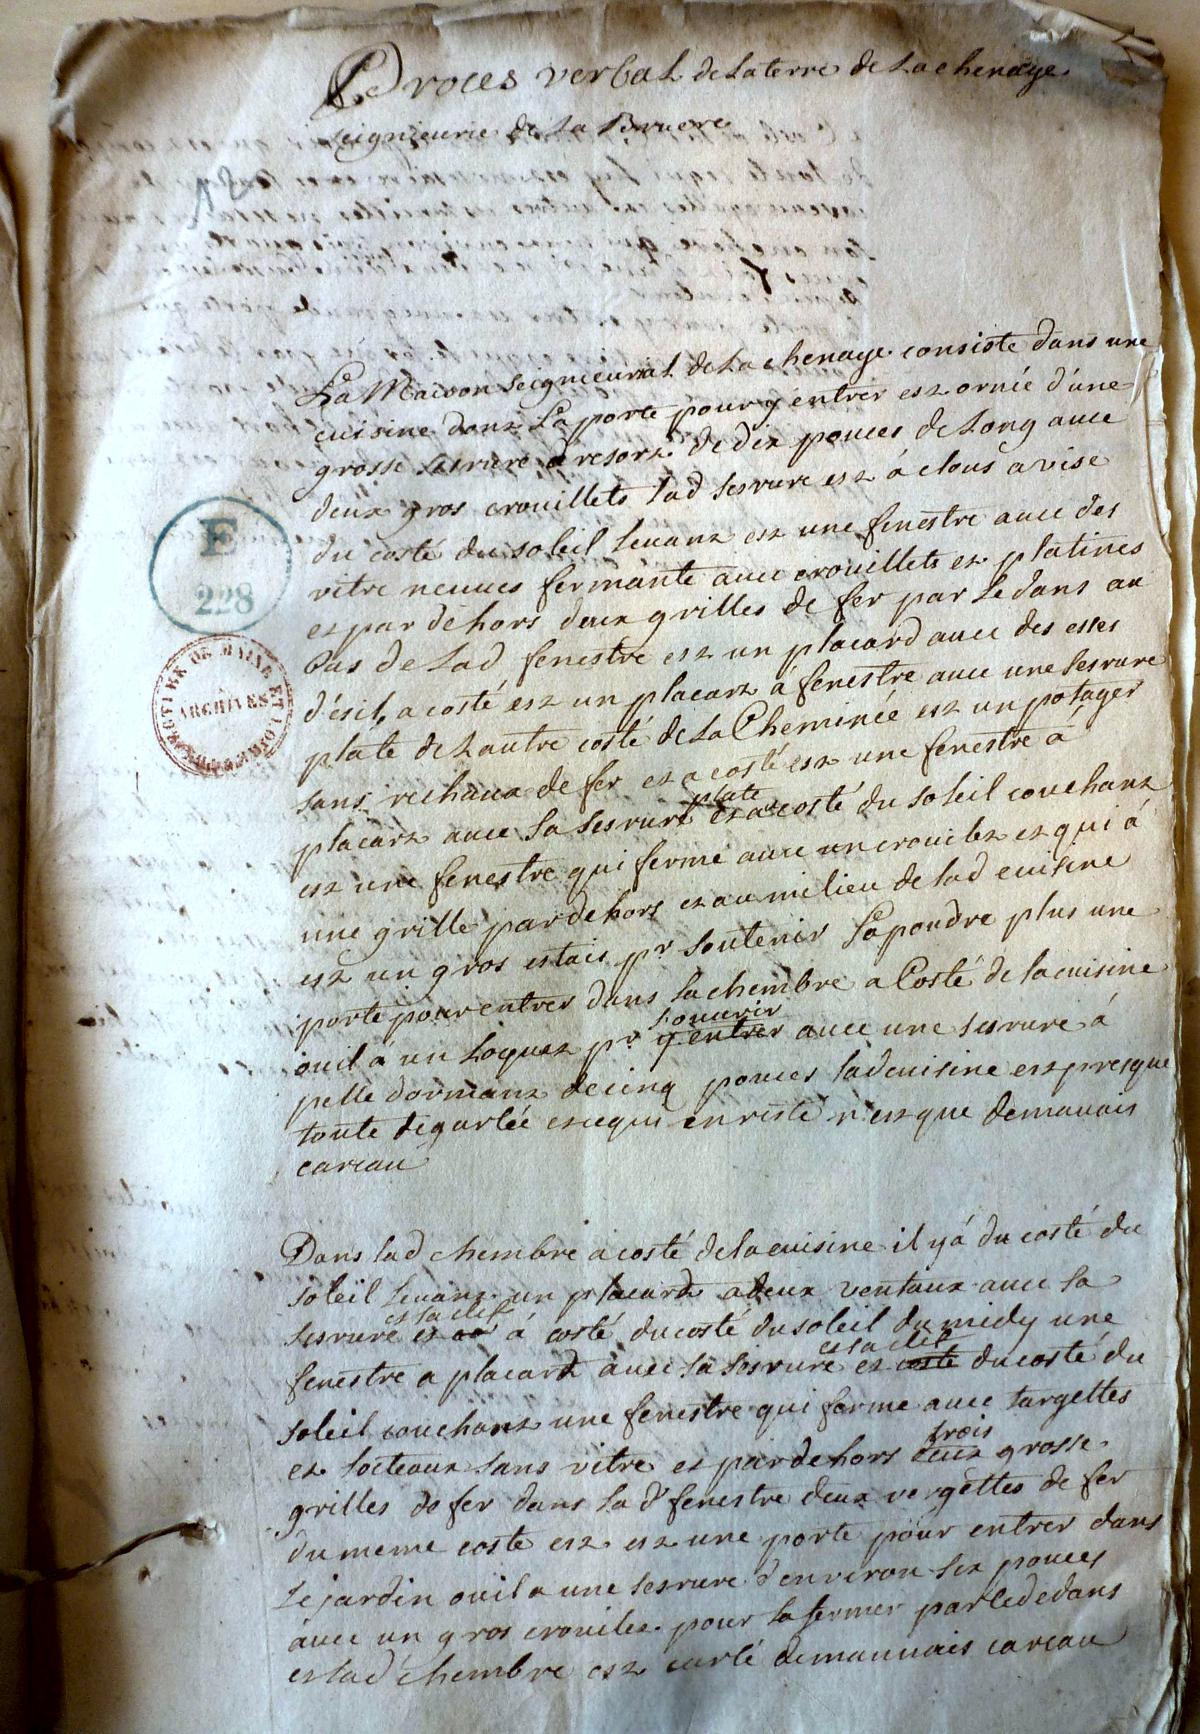 Proces verbal de la terre de la chenaye
seigneurie de la Bruere
12
La Maison seigneurial de la chenaye consiste dans une
cuisine dont la porte pour y entrer est ornée d'une
grosse serrure a resort de dix pouces de long avec
deux gros crouillets lad serrure est à clous a vise
du costé du soleil levant est une fenestre avec des
vitre neuves fermante avec crouillets et platines
et par dehors deux grilles de fer par le dans au
bas de lad fenestre est un placard avec des esses
a costé est un placart à fenestre avec une serrure
plate de l'autre costé de la Cheminée est un potager
sans rechaux de fer et a costé est une fenestre à
plate
placart avec sa serrure et a costé du soleil couchant
est une fenestre qui ferme avec un crouilet et qui à
une grille par dehors et au milieu de lad cuisine
est un gros estais pr soutenir la poudre plus une
porte pour entrer dans la chembre a Costé de la cuisine
s'ouvrir
ou il à un loquet pr y entrer avec une serrure à
pelle dormant de cinq pouces lad cuisine est presque
toute degarlée et ce qui en reste n'est que de mauvais
careau
Dans lad chembre a costé de la cuisine il y à du costé du
soleil levant un placard a deux ventaux avec sa
et sa clef
serrure et à costé du costé du soleil du midy une
et sa clef
fenestre a placard avec sa serrure et coste du costé du
soleil couchant une fenestre qui ferme avec targettes
et loiteaux sans vitre et par dehors deux grosse
trois
grilles de fer dans la de fenestre deux vergettes de fer
du meme coste est est une porte pour entrer dans
le jardin ou il a une serrure d'environ six pouces
avec un gros crouilet pour la fermer par le dedans
et lad chembre est carlé de mauvais careau
E
228
ARCHIVES
DE MAINE ET LOIRE